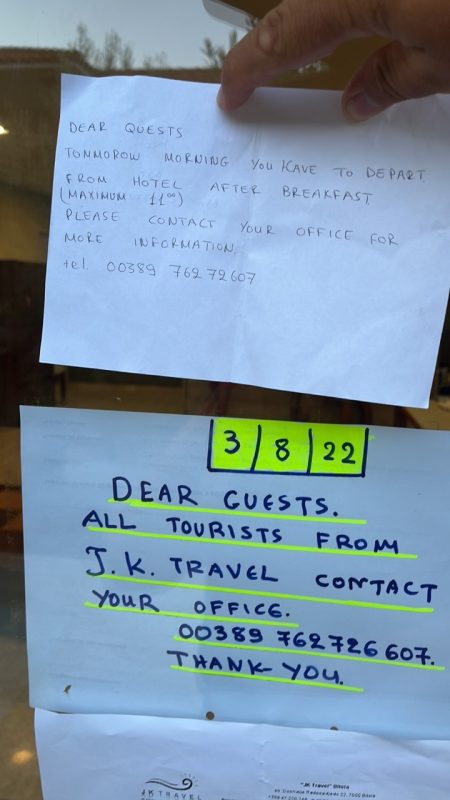 DEAR QUESTS
TONMOROW MORNING YOU HAVE TO DEPART
FROM HOTEL AFTER BREAKFAST
(MAXIMUM 11⁰⁰)
PLEASE CONTACT YOUR OFFICE FOR
MORE INFORMATION.
tel. 00389 762 72 607
3/8/22
DEAR GUESTS.
ALL TOURISTS FROM
J.K. TRAVEL CONTACT
YOUR OFFICE.
00389 762 726 607.
THANK YOU.
JK TRAVEL
"JK Travel" Bitola